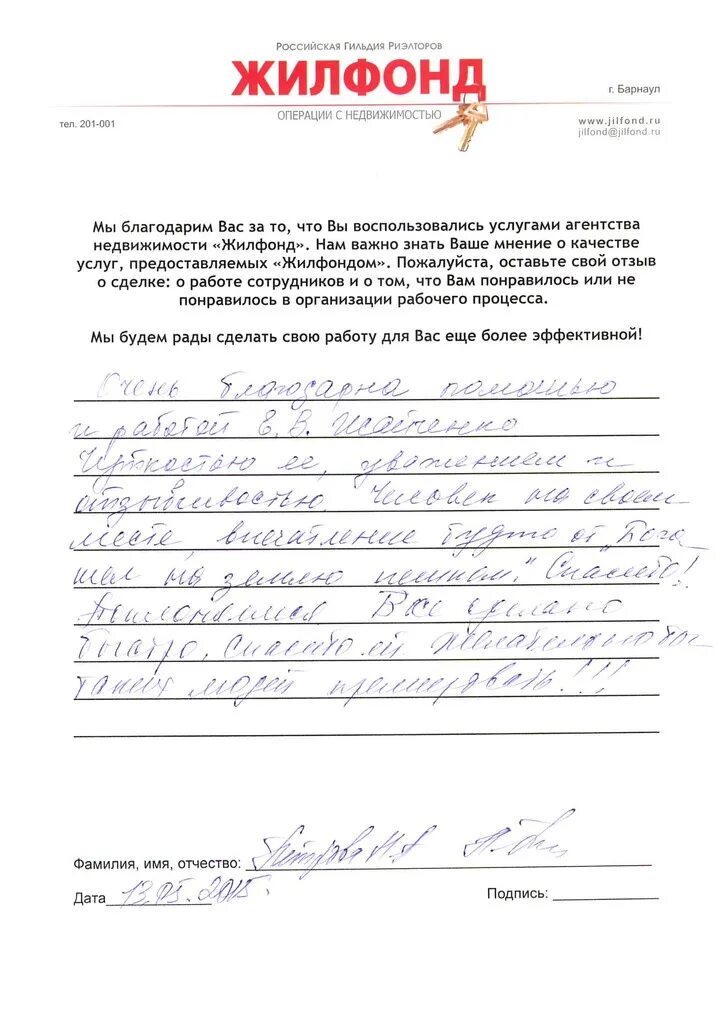 Российская Гильдия Риэлторов
ЖИЛФОНД
г. Барнаул
ОПЕРАЦИИ С НЕДВИЖИМОСТЬЮ
тел. 201-001
www.jilfond.ru
jilfond@jilfond.ru
Мы благодарим Вас за то, что Вы воспользовались услугами агентства
недвижимости «Жилфонд». Нам важно знать Ваше мнение о качестве
услуг, предоставляемых «Жилфондом». Пожалуйста, оставьте свой отзыв
о сделке: о работе сотрудников и о том, что Вам понравилось или не
понравилось в организации рабочего процесса.
Мы будем рады сделать свою работу для Вас еще более эффективной!
Очень благодарна помощью
и работой Е.В.
Чуткостью ее, уважением и
отзывчивостью. Человек на своем
месте, впечатление будто от "Бога
шел на землю пешком." Спасибо!
Все сделано
быстро, спасибо ей желательно бы
таких людей премировать!!!
Фамилия, имя, отчество: Петрова Н.А
Дата 13.05.2015г.
Подпись: